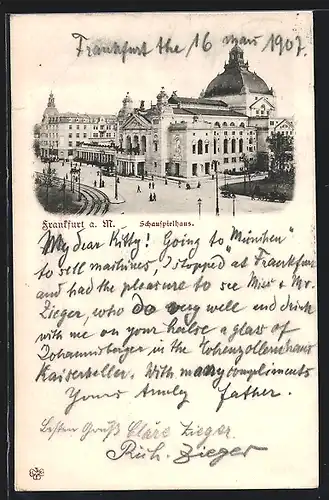 Frankfurt the 16 mars 1907.
Frankfurt a. M. Schauspielhaus.
My dear Kitty! Going to "München"
to sell machines, I stopped at Frankfurt
and had the pleasure to see Mies & Mr.
Zieger, who do very well and drink
with me on your halse a glas of
Johannisberger in the Hohenzollernhaus
Kaiserkeller. With many compliments
Yours truly father.
Besten Gruß Cläre Zieger.
Rich. Zieger